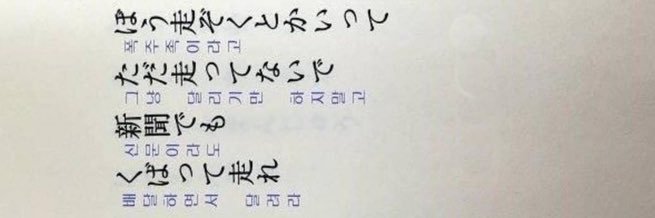 ぼう走ぞくとかいって
폭주족이라고
ただ走ってないで
그냥 달리기만 하지말고
新聞でも
신문이라도
くばって走れ
배달하면서 달려라